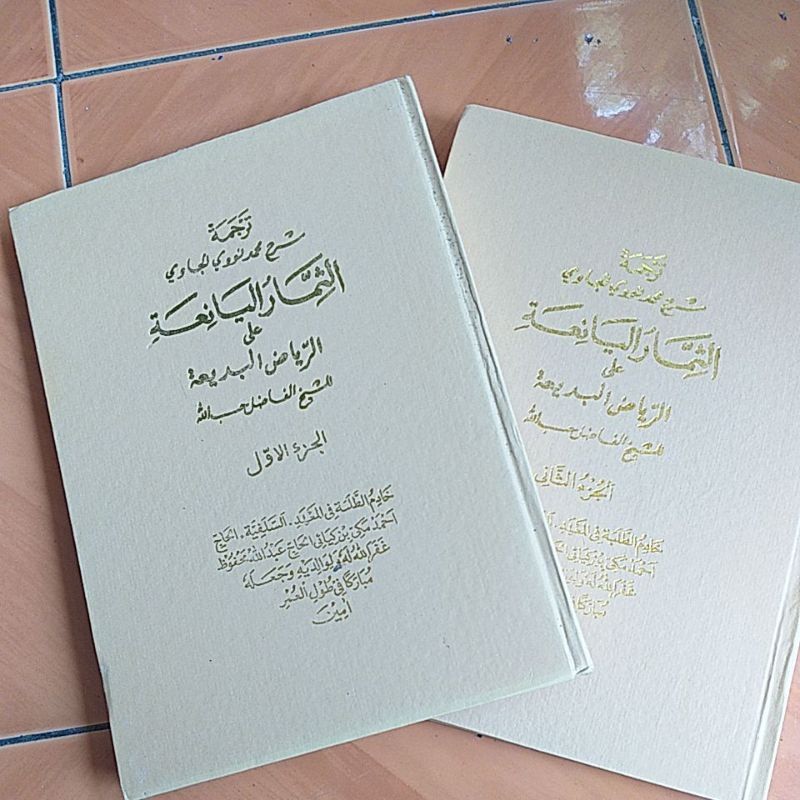 تَرْجَمَةْ
شرح محمد نووي الجاوي
الثِّمَارُ اليَانِعَةِ
على
الرِّيَاضِ البديعة
للشيخ الفاضل حسب الله
الجزء الاوّل
خَادِمُ الطَّلَبَةِ فِى الْمَعْهَدِ. اَلسَّلَفِيَّة. الحاج
اَحْمَدْ مَكِّى بْن كِيَاهِى الحَاجّ عَبْدُ اللهْ مَحْفُوظْ
غَفَرَ اللهُ لَهُ وَلِوَالِدَيْهِ وَجَعَلَهُ
مُبَارَكًا فِى طُوْلِ الْعُمْرِ
اٰمِيْنَ
تَرْجَمَةْ
شرح محمد نووي الجاوي
الثِّمَارُ اليَانِعَةِ
على
الرِّيَاضِ البديعة
للشيخ الفاضل حسب الله
اَلْجُزْءُ الثَّانِى
خَادِمُ الطَّلَبَةِ فِى الْمَعْهَدِ.
اَحْمَدْ مَكِّى بْن كِيَاهِى
غَفَرَ اللهُ لَهُ
مُبَارَكًا